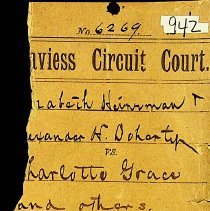 No. 6269
942
aviess Circuit Court.
zabeth Heinsman
lexander H. Doherty
vs.
harlotte Grace
and others.